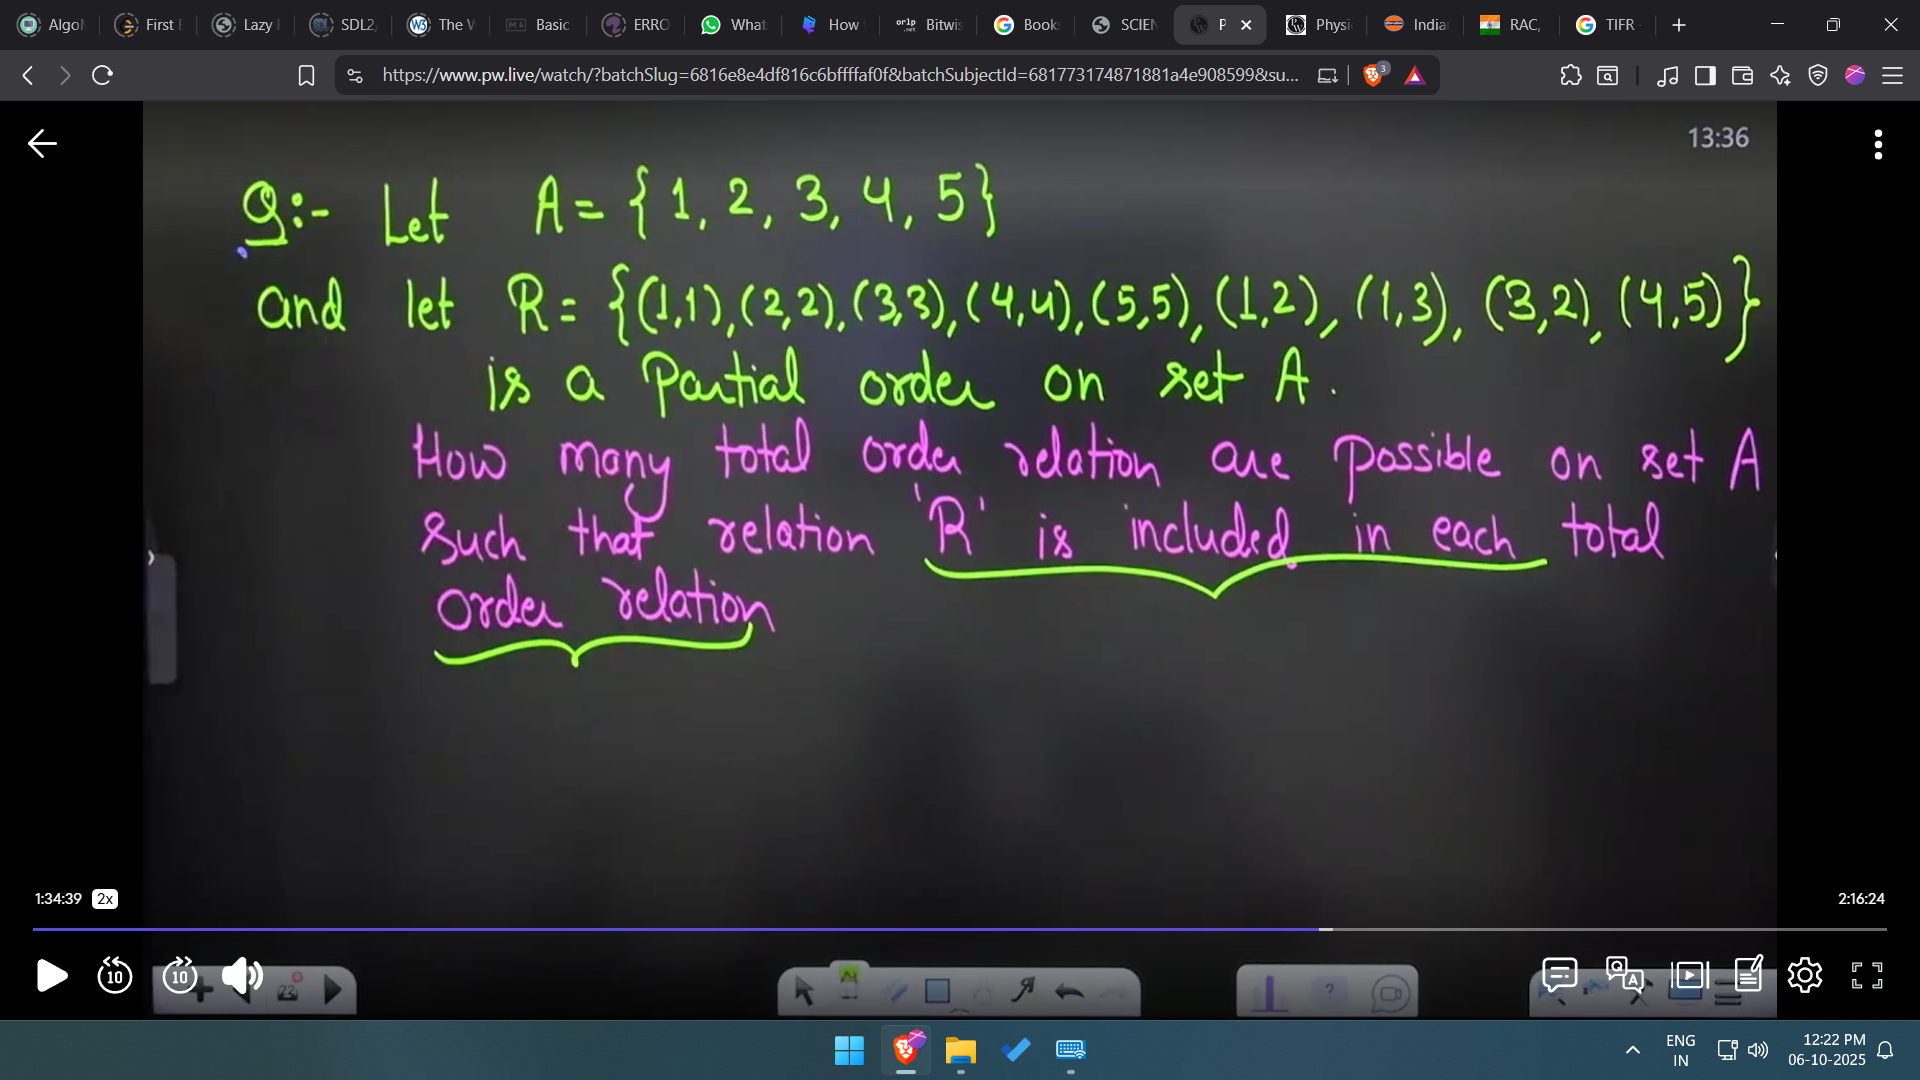 Algo
First
Lazy
SDL2
The W
Basic
ERRO
What
How
orlp .net
Bitwi
Book
SCIEN
P
Physi
India
RAC,
TIFR
https://www.pw.live/watch/?batchSlug=6816e8e4df816c6bffffaf0f&batchSubjectId=681773174871881a4e908599&su...
3
13:36
Q:- Let A = { 1, 2, 3, 4, 5}
and let R = {(1,1), (2,2), (3,3), (4,4), (5,5), (1,2), (1,3), (3,2), (4,5)}
is a Partial order on set A.
How many total order relation are possible on set A
such that relation 'R' is included in each total
order relation
1:34:39 2x
2:16:24
10 10
23
ENG
IN
12:22 PM
06-10-2025